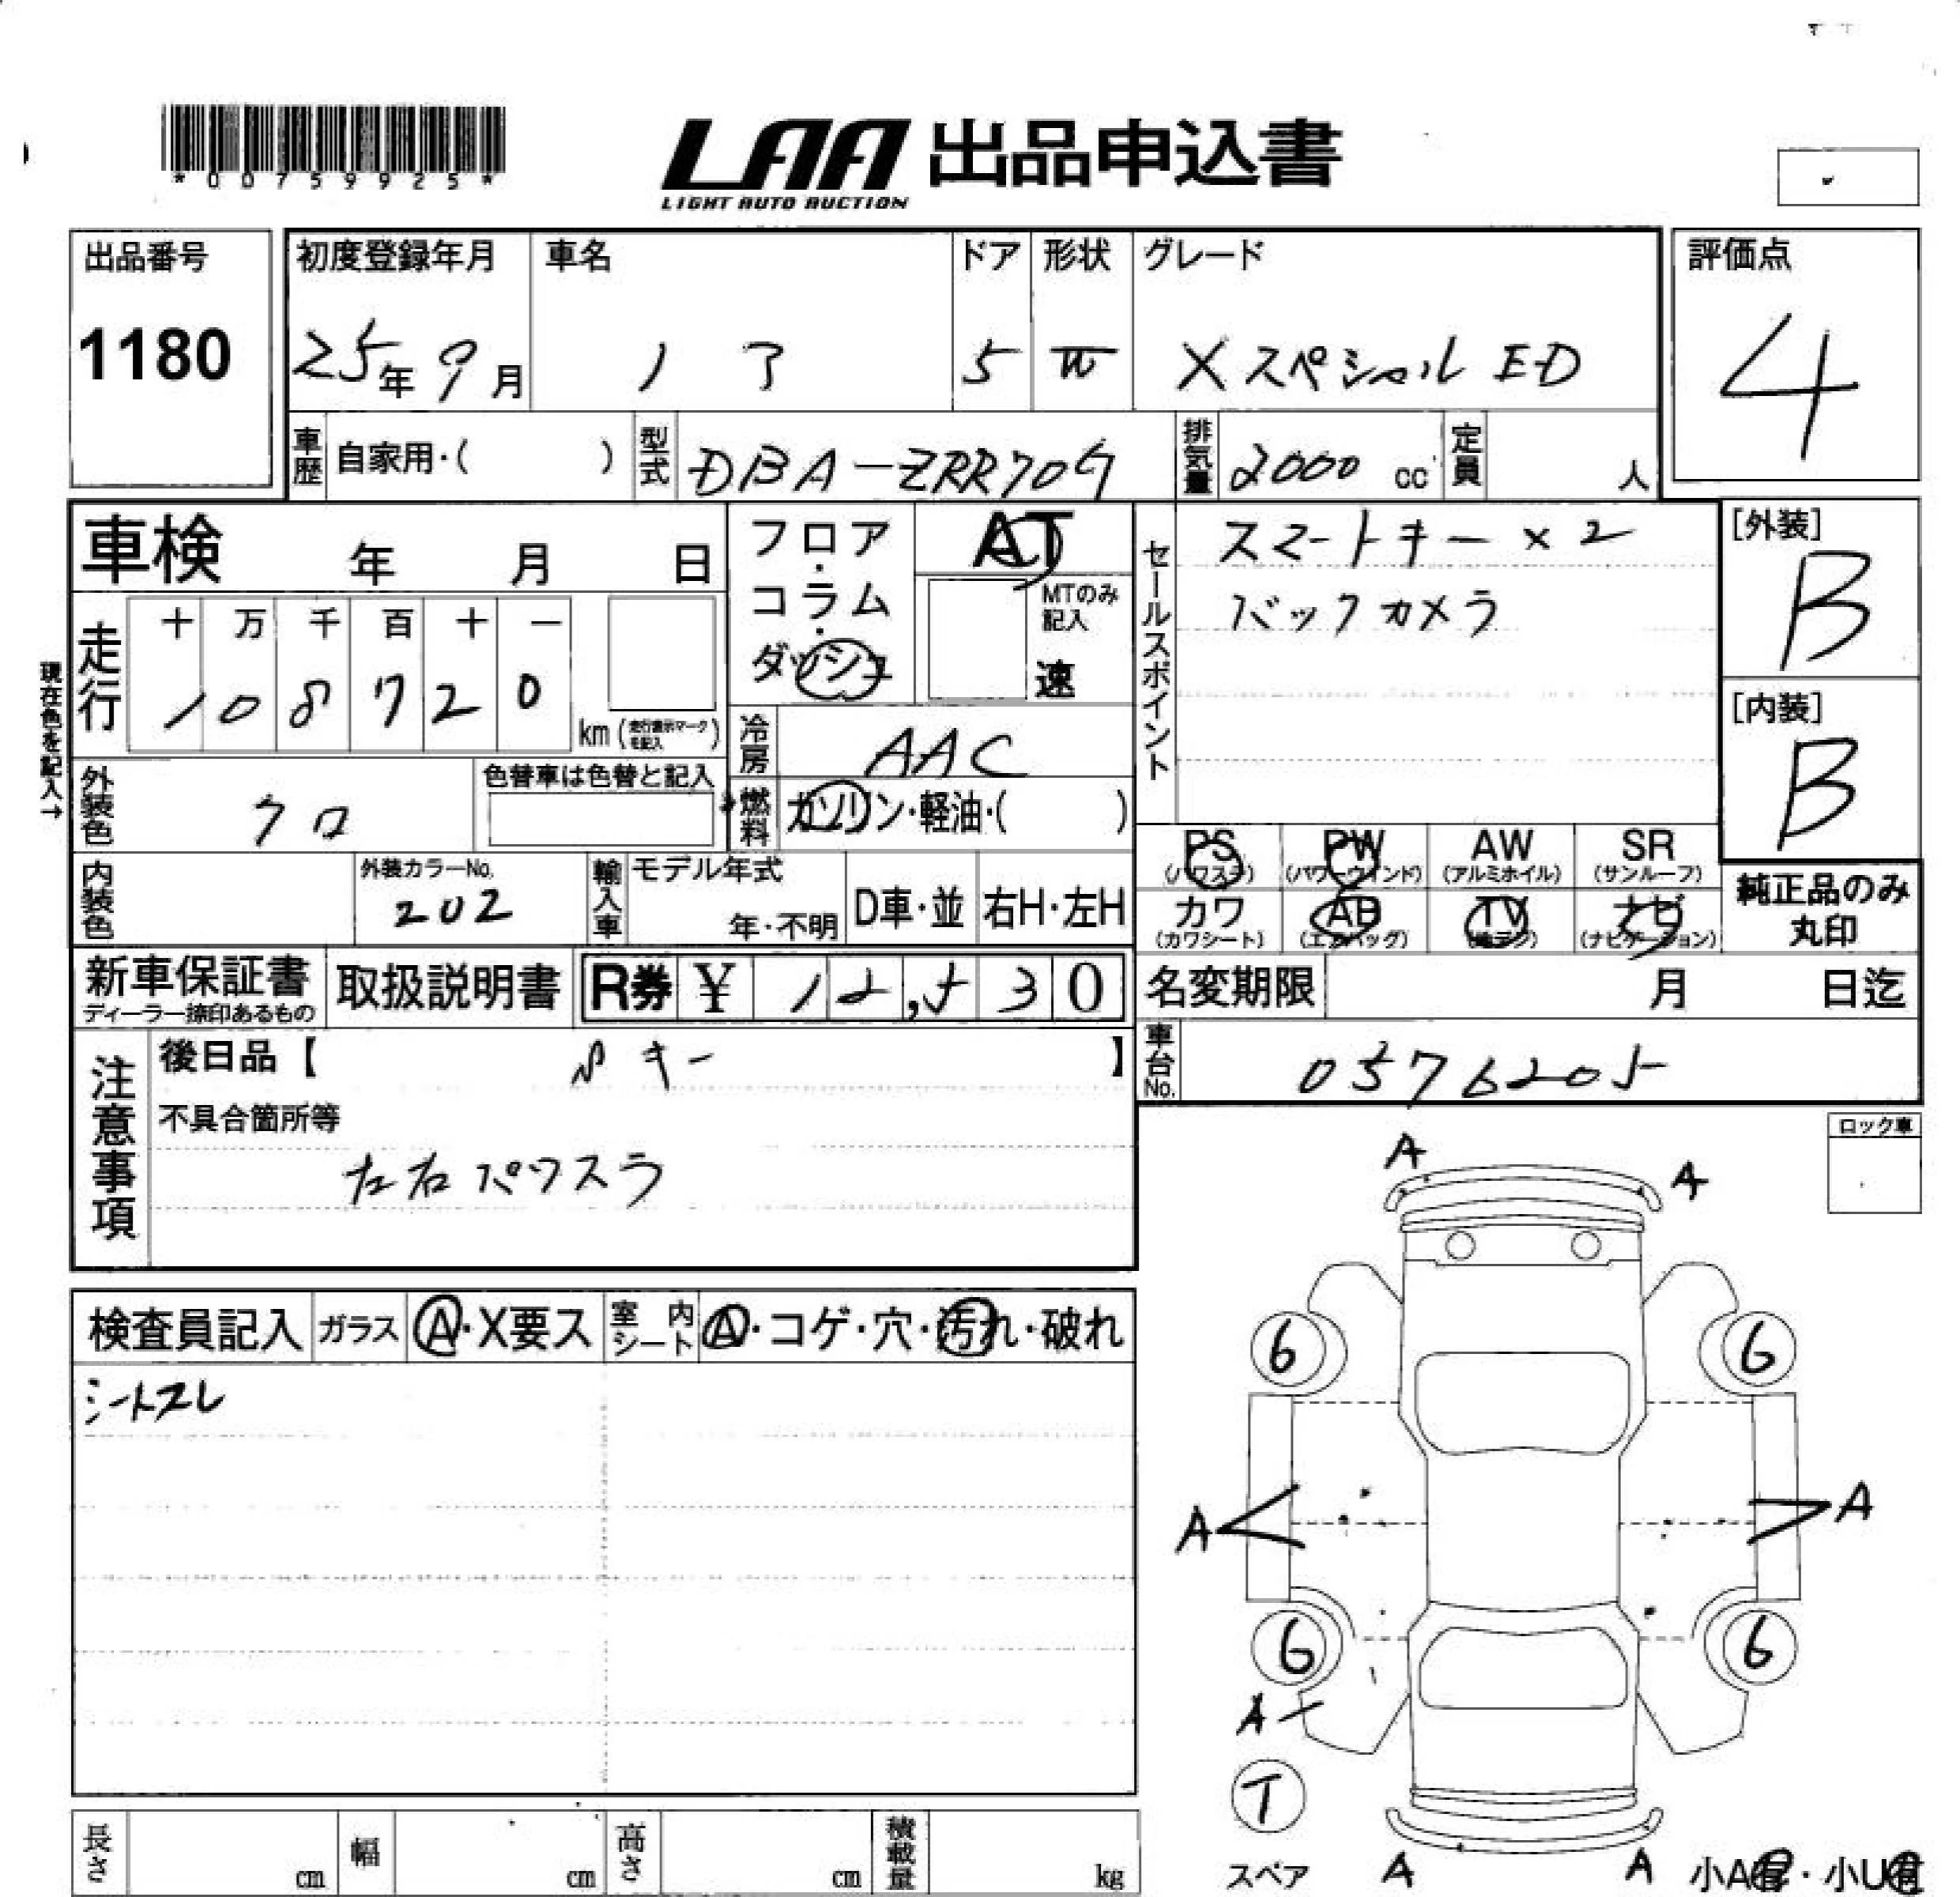 *00759925*
LAA 出品申込書
LIGHT AUTO AUCTION
出品番号 初度登録年月 車名 ドア 形状 グレード 評価点
1180 25年 9月 5 W Xスペシャル ED 4
車歴 自家用・( ) 型式 DBA-ZRR70G 排気量 2000 cc 定員 人
車検 年 月 日 フロア・コラム・ダッシュ AT セールスポイント スマートキー×2 [外装]
MTのみ記入 バックカメラ B
走行 十 万 千 百 十 一 速
現在色を記入→
1 0 8 7 2 0 km (走行表示マークを記入) [内装]
冷房 AAC B
外装色 クロ 色替車は色替と記入 燃料 ガソリン・軽油・( )
PS PW AW SR
(パワステ) (パワーウインド) (アルミホイル) (サンルーフ)
内装色 外装カラーNo. 202 輸入車 モデル年式 年・不明 D車・並 右H・左H
カワ AB TV ナビ 純正品のみ
(カワシート) (エアバッグ) (地デジ) (ナビゲーション) 丸印
新車保証書 取扱説明書 R券 ¥ 12,530 名変期限 月 日迄
ディーラー捺印あるもの
注意事項 後日品【 キー 】 車台No. 0576205
不具合箇所等 ロック車
左右パワスラ
A A
検査員記入 ガラス A・X要ス 室内シート A・コゲ・穴・汚れ・破れ
6 6
シートスレ
A A
6 6
A
T
スペア A A 小A有・小U有
長さ cm 幅 cm 高さ cm 積載量 kg